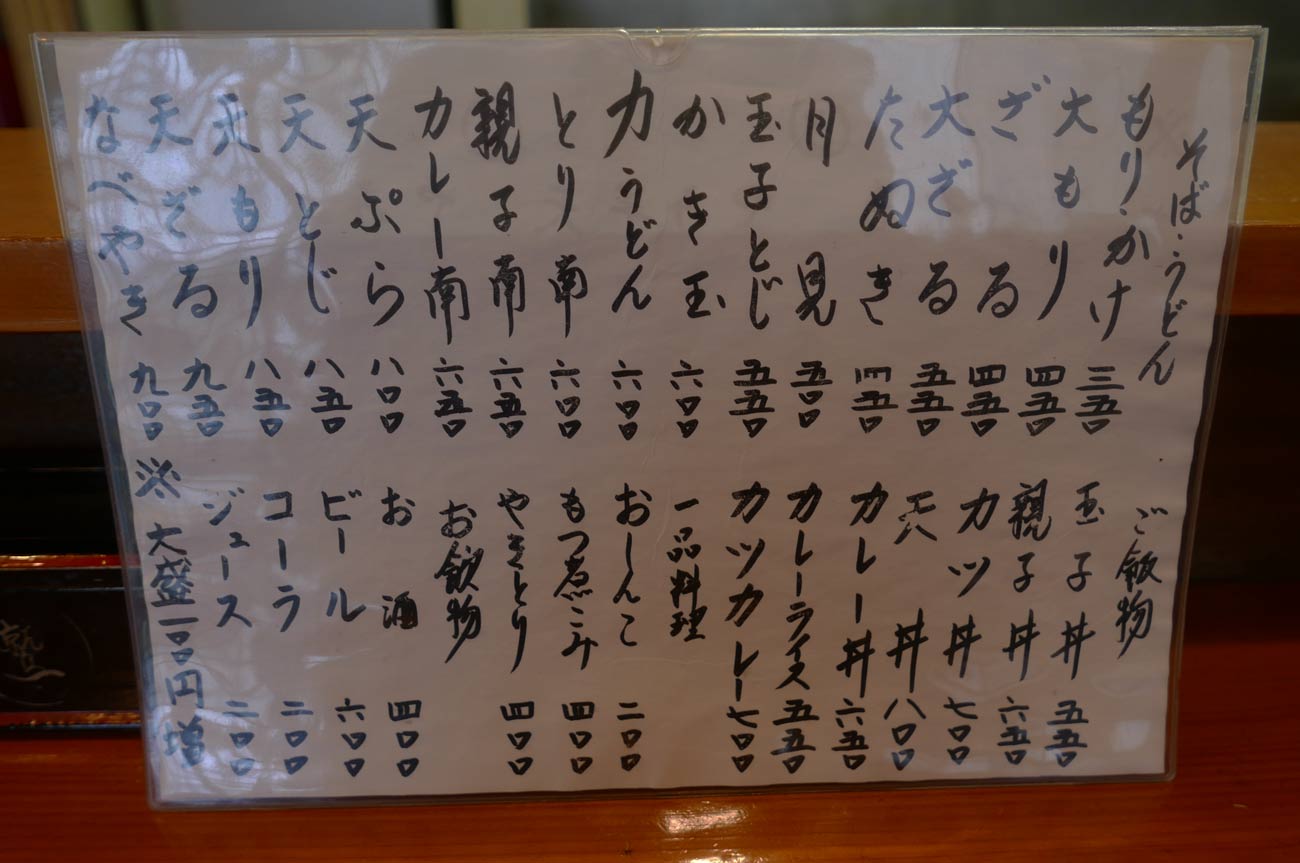 そば・うどん
もり・かけ 三五〇
大もり 四五〇
ざる 四五〇
大ざる 五五〇
たぬき 四五〇
月見 五〇〇
玉子とじ 五五〇
かき玉 六〇〇
力うどん 六〇〇
とり南 六〇〇
親子南 六五〇
カレー南 六五〇
天ぷら 八〇〇
天とじ 八五〇
天もり 八五〇
天ざる 九五〇
なべやき 九〇〇
ご飯物
玉子丼 五五〇
親子丼 六五〇
カツ丼 七〇〇
天丼 八〇〇
カレー丼 六五〇
カレーライス 五五〇
カツカレー 七〇〇
一品料理
おしんこ 二〇〇
もつ煮こみ 四〇〇
やきとり 四〇〇
お飲物
お酒 四〇〇
ビール 六〇〇
コーラ 二〇〇
ジュース 二〇〇
※大盛一〇〇円増